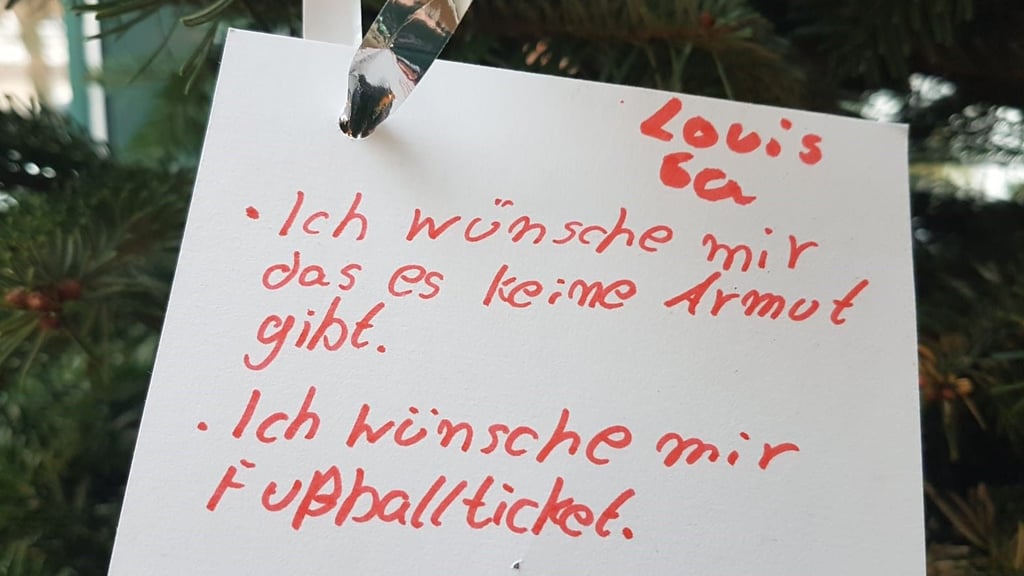 Louis
6a
• Ich wünsche mir
das es keine Armut
gibt.
• Ich wünsche mir
Fußballticket.